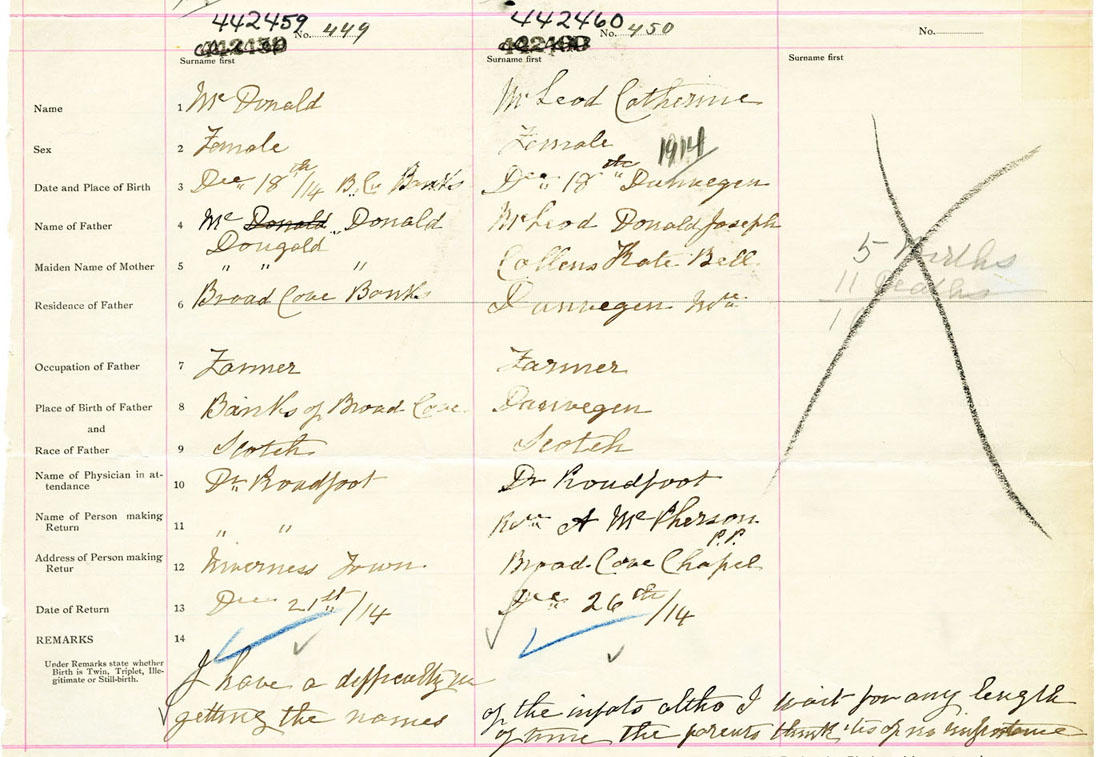 442459 442460
No. 449 No. 450 No.
Surname first Surname first Surname first
Name 1 Mc Donald Mc Leod Catherine
Sex 2 Female Female
1914
Date and Place of Birth 3 Dec 18th/14 B. C. Banks Dec 18th Dunvegen
Name of Father 4 Mc Donald Donald Mc Leod Donald Joseph
Dougald
Maiden Name of Mother 5 " " " Collens Kate Bell
Residence of Father 6 Broad Cove Banks Dunvegen
Occupation of Father 7 Farmer Farmer
Place of Birth of Father 8 Banks of Broad Cove Dunvegen
and
Race of Father 9 Scotch Scotch
Name of Physician in at-
tendance 10 Dr Roudfoot Dr Roudfoot
Name of Person making
Return 11 " " A McPherson
P.P.
Address of Person making
Retur 12 Inverness Town Broad Cove Chapel
Date of Return 13 Dec 21st/14 Dec 26th/14
REMARKS 14
Under Remarks state whether
Birth is Twin, Triplet, Ille-
gitimate or Still-birth.
5 Births
11 Deaths
I have a difficulty in
getting the names of the infats altho I wait for any length
of time the parents think tis of no importance